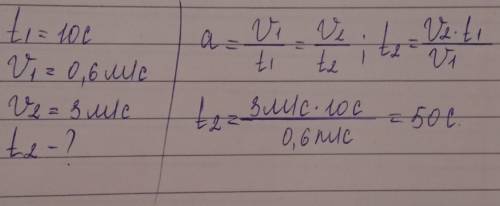 t1 = 10с
V1 = 0,6 м/с
V2 = 3 м/с
t2 - ?
a = V1/t1 = V2/t2 ; t2 = V2·t1/V1
t2 = 3 м/с · 10с / 0,6 м/с = 50с.